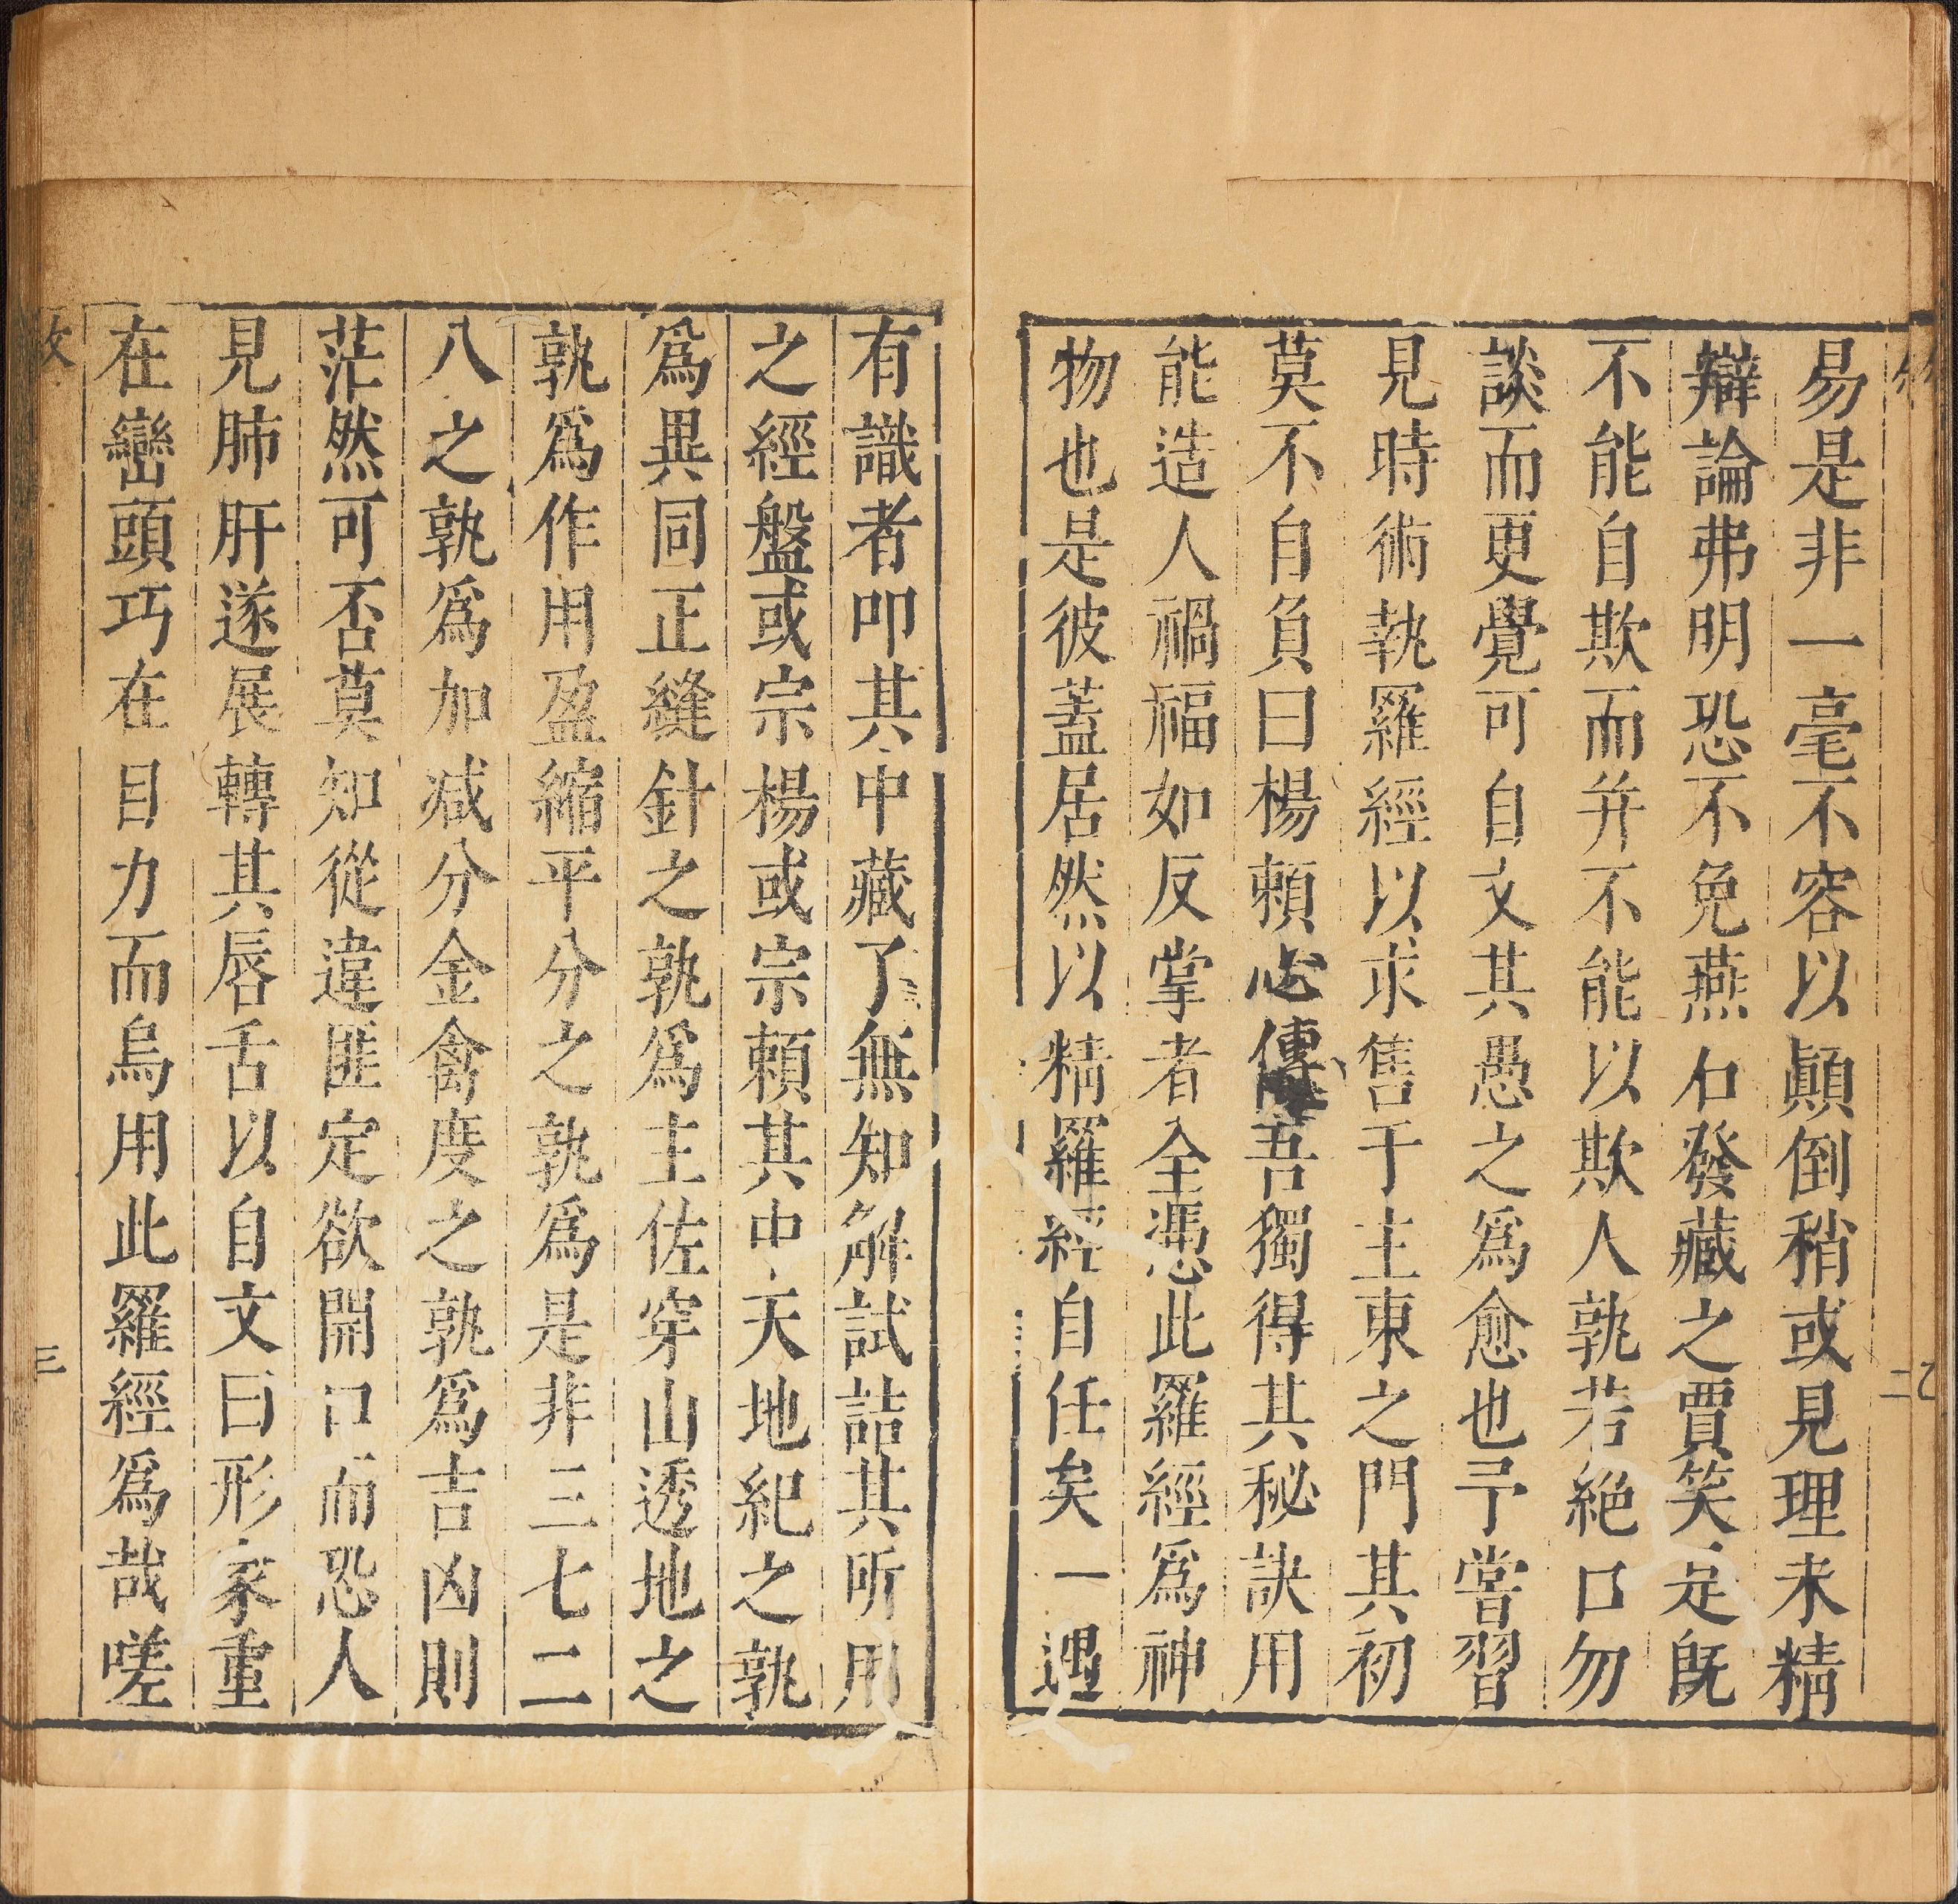 易是非一毫不容以顚倒稍或見理未精
辯論弗明恐不免燕石發藏之賈笑足旣
不能自欺而并不能以欺人孰若絶口勿
談而更覺可自文其愚之爲愈也予嘗習
見時術執羅經以求售于主東之門其初
莫不自負曰楊賴心傳吾獨得其秘訣用
能造人禍福如反掌者全憑此羅經爲神
物也是彼蓋居然以精羅經自任矣一遇
有識者叩其中藏了無知解試詰其所用
之經盤或宗楊或宗賴其中天地紀之孰
爲異同正縫針之孰爲主佐穿山透地之
孰爲作用盈縮平分之孰爲是非三七二
八之孰爲加减分金禽度之孰爲吉凶則
茫然可否莫知從違匪定欲開口而恐人
見肺肝遂展轉其唇舌以自文曰形家重
在巒頭巧在目力而烏用此羅經爲哉嗟
三